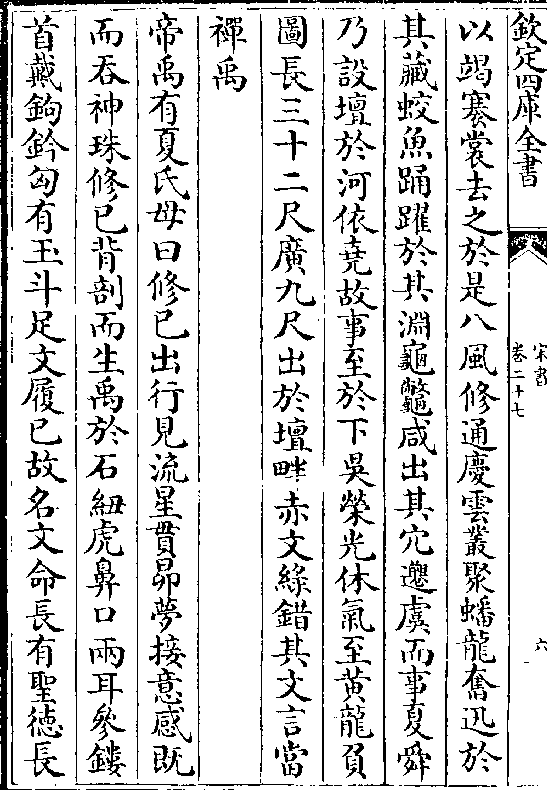 欽定四庫全書
宋書
卷二十七
六
以竭褰裳去之於是八風修通慶雲叢聚蟠龍奮迅於
其藏蛟魚踊躍於其淵龜鼈咸出其穴遷虞而事夏舜
乃設壇於河依堯故事至於下昃榮光休氣至黄龍負
圖長三十二尺廣九尺出於壇畔赤文緑錯其文言當
禪禹
帝禹有夏氏母曰修已出行見流星貫昴夢接意感既
而吞神珠修已背剖而生禹於石紐虎鼻口兩耳參鏤
首戴鉤鈐匈有玉斗足文履已故名文命長有聖徳長